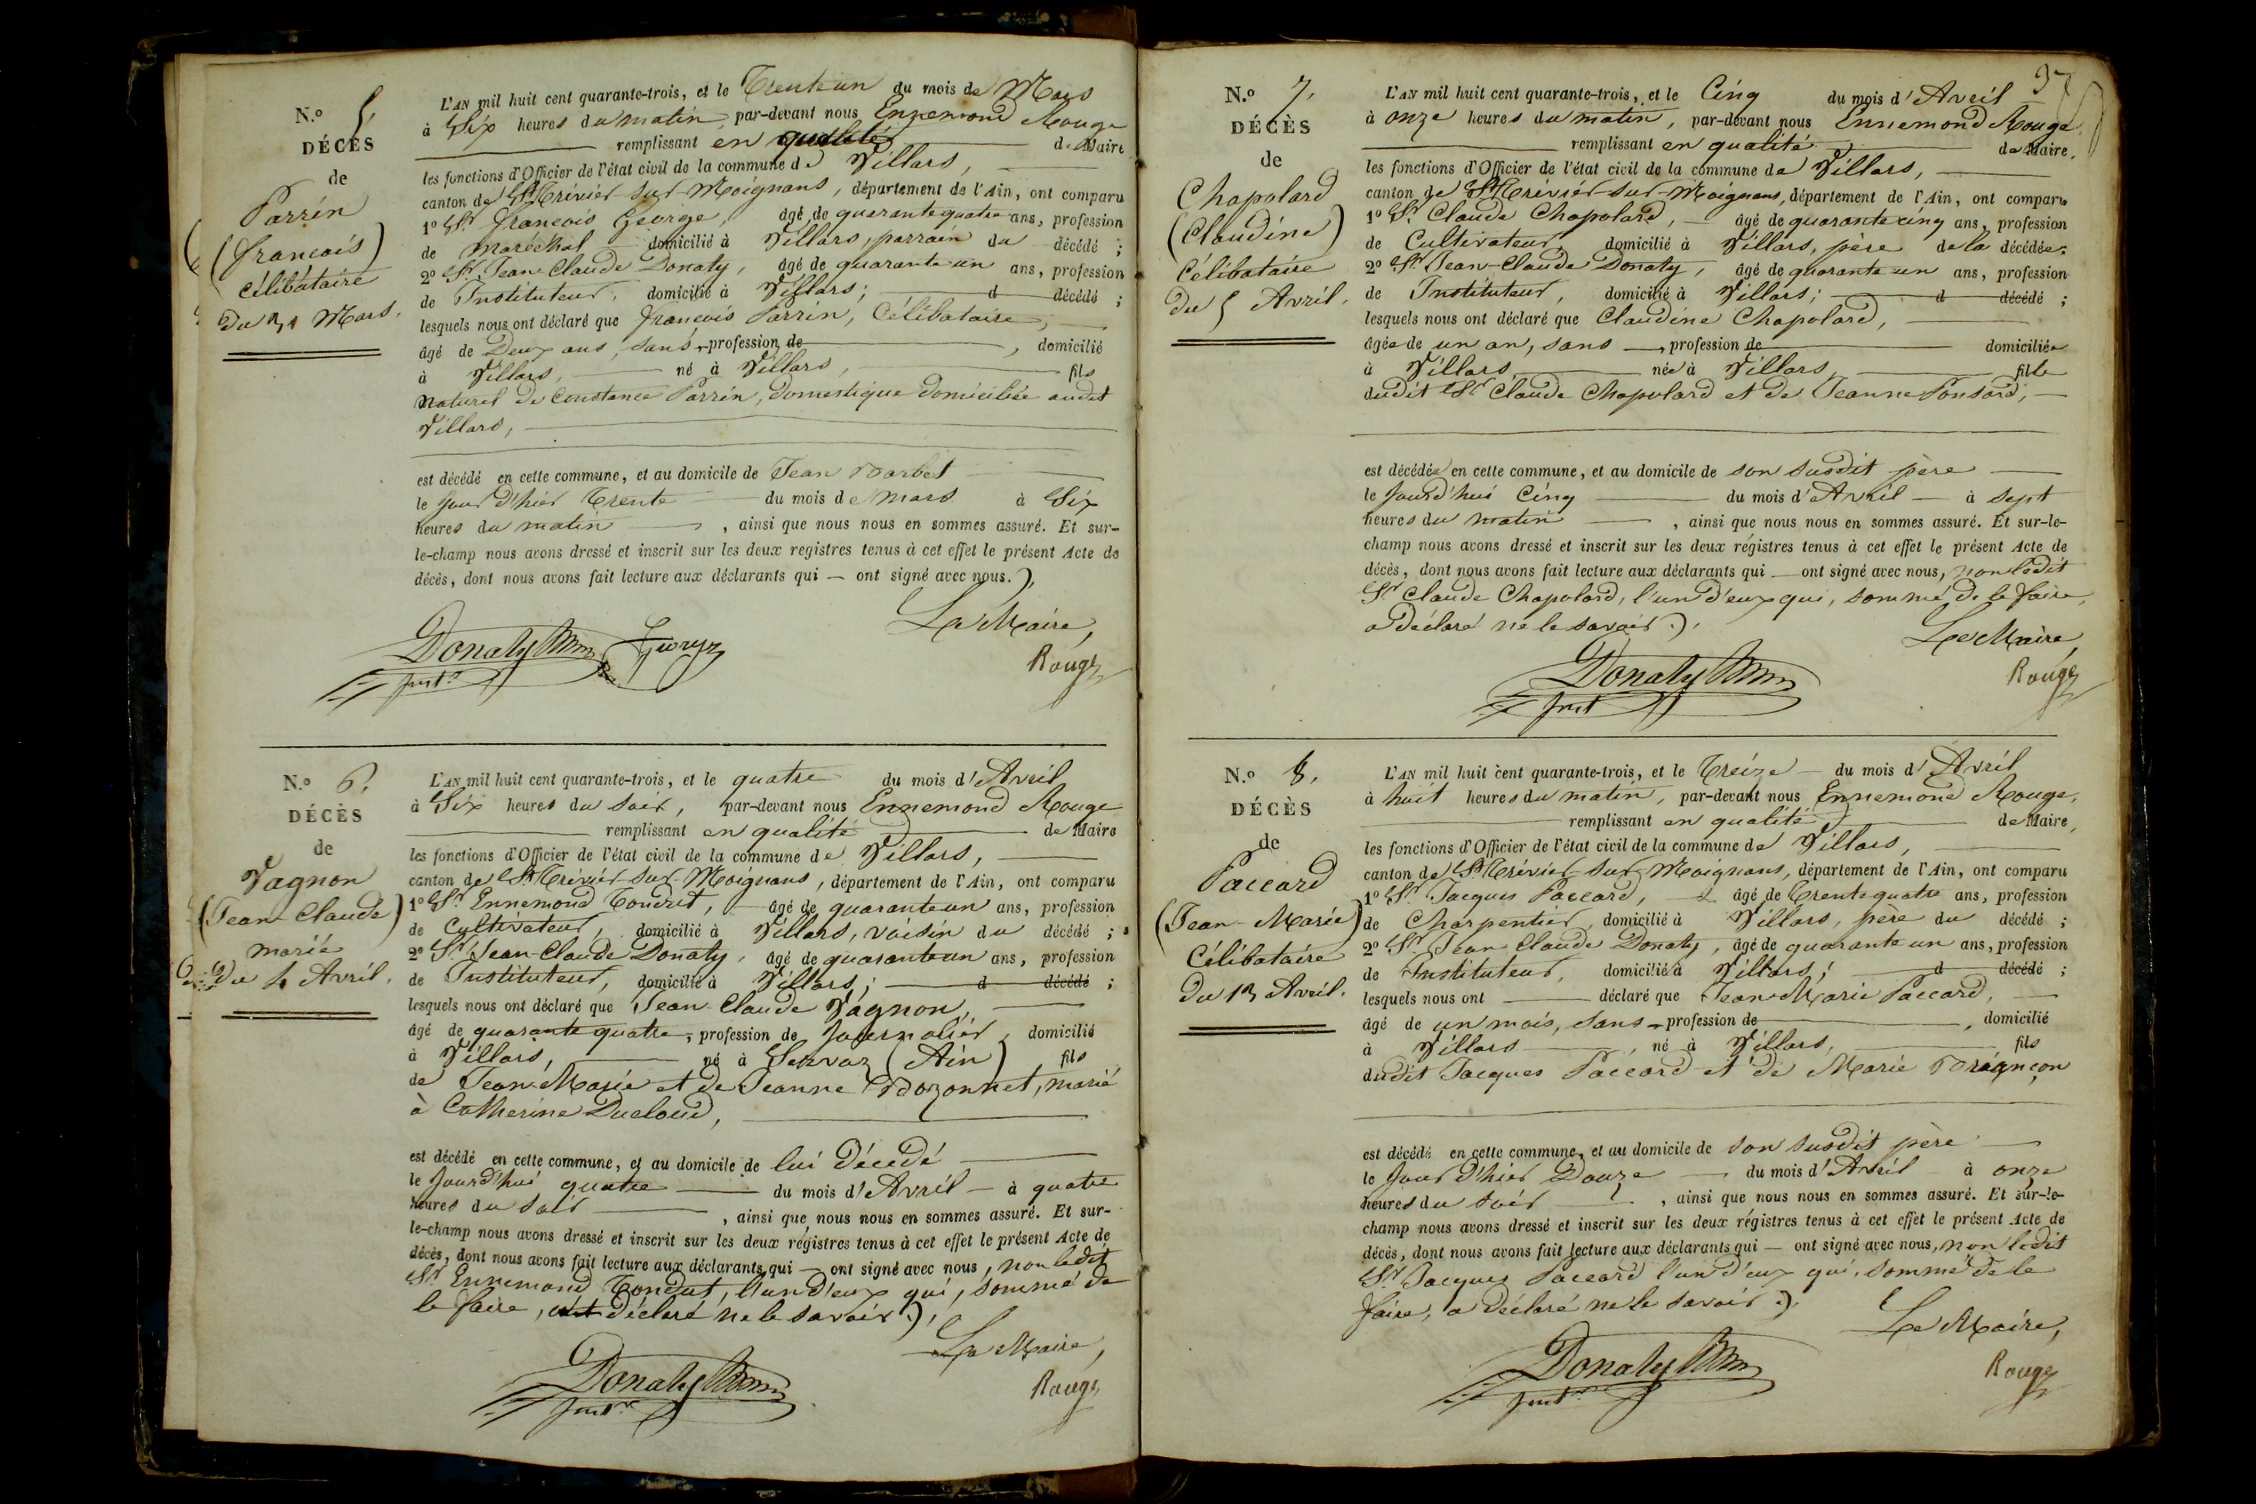 N.º 5.
DÉCÈS
de
Parrin
(francois)
Célibataire
Du 31 Mars.
L'AN mil huit cent quarante-trois, et le Trente un du mois de Mars
à Six heures du matin, par-devant nous Ennemond Rouge
remplissant en qualité de Maire
les fonctions d'Officier de l'état civil de la commune de Villars,
canton de St Trivier sur Moignans, département de l'Ain, ont comparu
1º Sr. francois George, âgé de quarante quatre ans, profession
de Maréchal domicilié à Villars, parrain du décédé ;
2º Sr. Jean Claude Donaty, âgé de quarante un ans, profession
de Instituteur, domicilié à Villars; d décédé ;
lesquels nous ont déclaré que francois Parrin, Célibataire,
âgé de Deux ans, sans profession de , domicilié
à Villars, né à Villars, fils
naturel de Constance Parrin, Domestique domiciliée audit
Villars,
est décédé en cette commune, et au domicile de Jean Barbet
le jour d'hier Trente du mois de mars à Six
heures du matin , ainsi que nous nous en sommes assuré. Et sur-
le-champ nous avons dressé et inscrit sur les deux registres tenus à cet effet le présent Acte de
décès, dont nous avons fait lecture aux déclarants qui — ont signé avec nous.).
Le Maire,
Donaty George
Instr
Rouge
N.º 6.
DÉCÈS
de
Vagnon
(Jean Claude)
marié
Du 4 Avril.
L'AN mil huit cent quarante-trois, et le quatre du mois d'Avril
à Six heures du soir, par-devant nous Ennemond Rouge
remplissant en qualité de Maire
les fonctions d'Officier de l'état civil de la commune de Villars,
canton de St Trivier sur Moignans, département de l'Ain, ont comparu
1º Sr Ennemond Tondut, âgé de quarante un ans, profession
de Cultivateur, domicilié à Villars, voisin du décédé ;
2º Sr Jean-Claude Donaty, âgé de quarante un ans, profession
de Instituteur, domicilié à Villars ; d décédé ;
lesquels nous ont déclaré que Jean Claude Vagnon,
âgé de quarante quatre, profession de Journalier, domicilié
à Villars, né à Servaz (Ain) fils
de Jean Marie et de Jeanne Bozonnet, marié
à Catherine Ducloud,
est décédé en cette commune, et au domicile de lui Décédé
le Jourd'hui quatre du mois d'Avril à quatre
heures du soir , ainsi que nous nous en sommes assuré. Et sur-
le-champ nous avons dressé et inscrit sur les deux régistres tenus à cet effet le présent Acte de
décès, dont nous avons fait lecture aux déclarants qui — ont signé avec nous, non ledit
Sr Ennemond Tondut, l'un d'eux qui, sommé de
le faire, a déclaré ne le savoir.).
Le Maire,
Donaty
Instr
Rouge
37
N.º 7.
DÉCÈS
de
Chapolard
(Claudine)
Célibataire
Du 5 Avril.
L'AN mil huit cent quarante-trois, et le Cinq du mois d'Avril
à onze heures du matin, par-devant nous Ennemond Rouge,
remplissant en qualité de Maire,
les fonctions d'Officier de l'état civil de la commune de Villars,
canton de St Trivier sur Moignans, département de l'Ain, ont comparu
1º Sr Claude Chapolard, âgé de quarante cinq ans, profession
de Cultivateur, domicilié à Villars, père de la décédée;
2º Sr Jean-Claude Donaty, âgé de quarante un ans, profession
de Instituteur, domicilié à Villars; d décédé ;
lesquels nous ont déclaré que Claudine Chapolard,
âgée de un an, sans , profession de domiciliée
à Villars née à Villars, fille
dudit Sr Claude Chapolard et de Jeanne Ponsard,
est décédée en cette commune, et au domicile de son susdit père
le Jourd'hui Cinq du mois d'Avril à sept
heures du matin , ainsi que nous nous en sommes assuré. Et sur-le-
champ nous avons dressé et inscrit sur les deux régistres tenus à cet effet le présent Acte de
décès, dont nous avons fait lecture aux déclarants qui — ont signé avec nous, non ledit
Sr Claude Chapolard, l'un d'eux qui, sommé de le faire,
a déclaré ne le savoir.).
Le Maire,
Donaty
Inst
Rouge
N.º 8.
DÉCÈS
de
Paccard
(Jean-Marie)
Célibataire
Du 13 Avril.
L'AN mil huit cent quarante-trois, et le Treize du mois d'Avril
à huit heures du matin, par-devant nous Ennemond Rouge,
remplissant en qualité de Maire,
les fonctions d'Officier de l'état civil de la commune de Villars,
canton de St Trivier sur Moignans, département de l'Ain, ont comparu
1º Sr Jacques Paccard, âgé de Trente quatre ans, profession
de Charpentier, domicilié à Villars, père du décédé ;
2º Sr Jean Claude Donaty, âgé de quarante un ans, profession
de Instituteur, domicilié à Villars; d décédé ;
lesquels nous ont déclaré que Jean-Marie Paccard,
âgé de un mois, sans profession de , domicilié
à Villars né à Villars, fils
dudit Jacques Paccard et de Marie Bragnçon
est décédé en cette commune, et au domicile de son susdit père
le Jour d'hier Douze du mois d'Avril à onze
heures du soir , ainsi que nous nous en sommes assuré. Et sur-le-
champ nous avons dressé et inscrit sur les deux régistres tenus à cet effet le présent Acte de
décès, dont nous avons fait lecture aux déclarants qui — ont signé avec nous, non ledit
Sr Jacques Paccard l'un d'eux qui, sommé de le
faire, a déclaré ne le savoir.).
Le Maire,
Donaty
Instr
Rouge